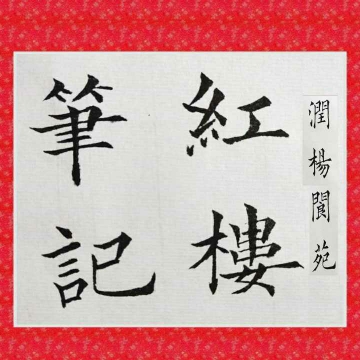 潤楊閬苑
紅樓
筆記